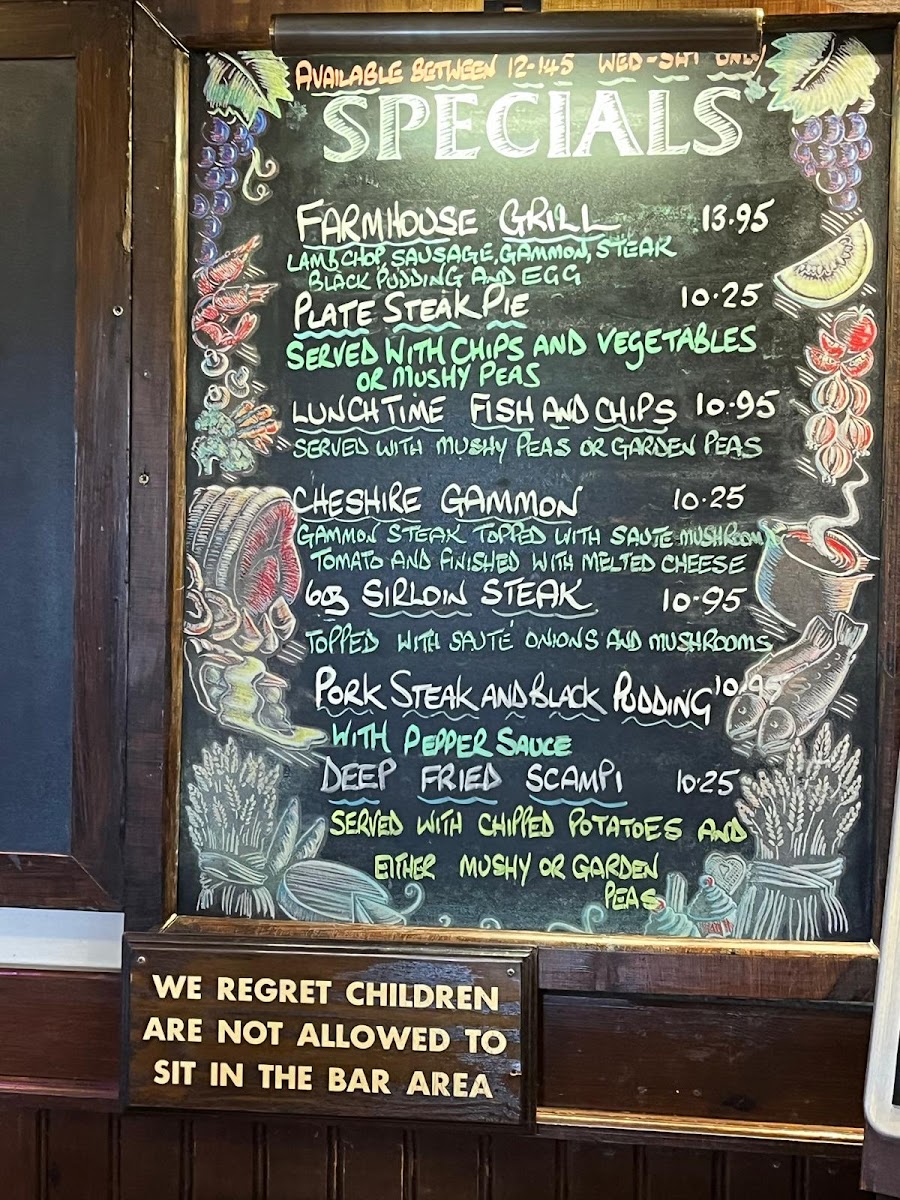 AVAILABLE BETWEEN 12-145 WED-SAT ONLY
SPECIALS
FARMHOUSE GRILL 13.95
LAMB CHOP, SAUSAGE, GAMMON, STEAK
BLACK PUDDING AND EGG
PLATE STEAK PIE 10.25
SERVED WITH CHIPS AND VEGETABLES
OR MUSHY PEAS
LUNCHTIME FISH AND CHIPS 10.95
SERVED WITH MUSHY PEAS OR GARDEN PEAS
CHESHIRE GAMMON 10.25
GAMMON STEAK TOPPED WITH SAUTE MUSHROOM
TOMATO AND FINISHED WITH MELTED CHEESE
6oz SIRLOIN STEAK 10.95
TOPPED WITH SAUTÉ ONIONS AND MUSHROOMS
PORK STEAK AND BLACK PUDDING 10.95
WITH PEPPER SAUCE
DEEP FRIED SCAMPI 10.25
SERVED WITH CHIPPED POTATOES AND
EITHER MUSHY OR GARDEN
PEAS
WE REGRET CHILDREN
ARE NOT ALLOWED TO
SIT IN THE BAR AREA